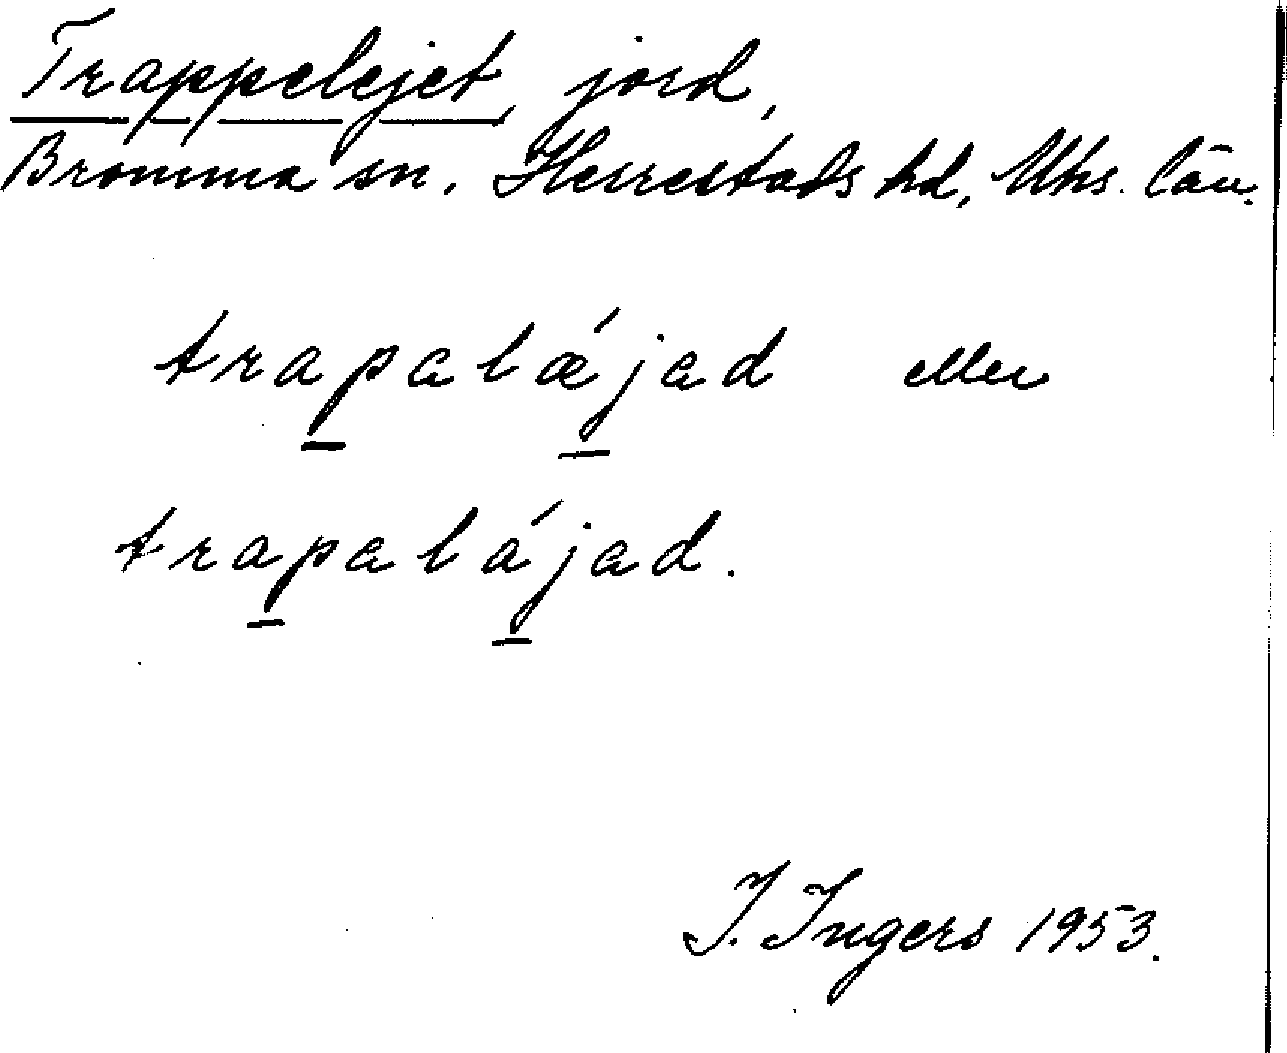 Trappelejet, jord,
Bromma sn. Herrestads hd, Mhs. län.
trapalǽjad eller
trapalájad.
I. Ingers 1953.